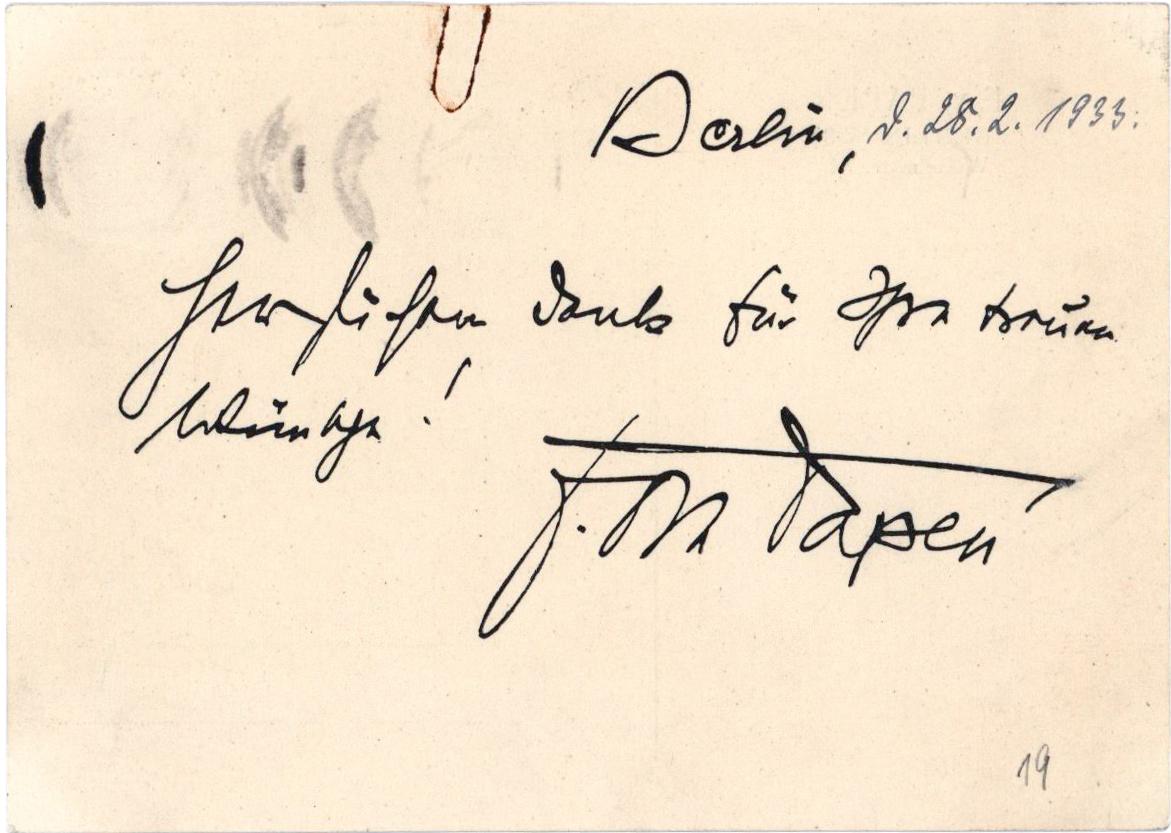 Berlin, d. 28.2.1933.
Herzlichen Dank für Ihre treuen
Wünsche!
F. von Papen
19